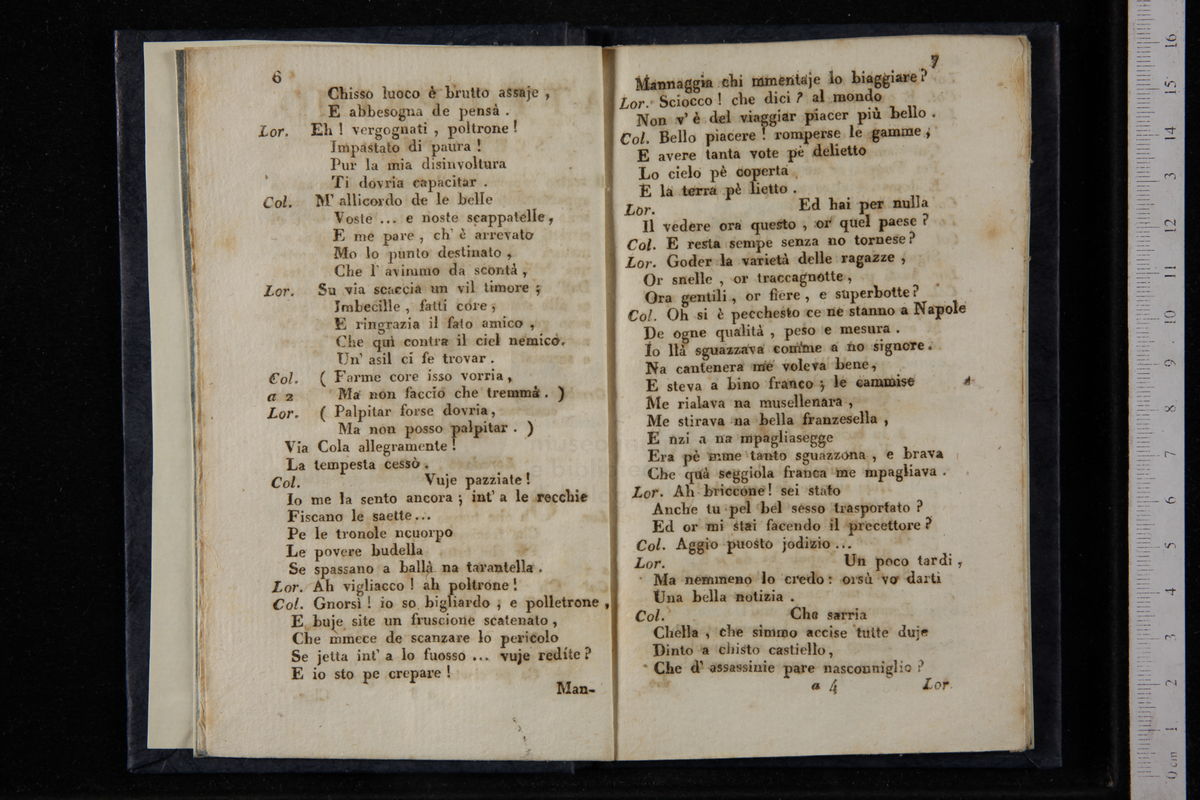 6
Chisso luoco è brutto assaje ,
E abbesogna de pensà .
Lor. Eh ! vergognati , poltrone !
Impastato di paura !
Pur la mia disinvoltura
Ti dovria capacitar .
Col. M' allicordo de le belle
Voste ... e noste scappatelle ,
E me pare , ch' è arrevato
Mo lo punto destinato ,
Che l' avimmo da scontà ,
Lor. Su via scaccia un vil timore ;
Imbecille , fatti core ,
E ringrazia il fato amico ,
Che quì contra il ciel nemico.
Un' asil ci fe trovar .
Col. ( Farme core isso vorria ,
a 2 Ma non faccio che tremmà . )
Lor. ( Palpitar forse dovria ,
Ma non posso palpitar . )
Via Cola allegramente !
La tempesta cessò .
Col. Vuje pazziate !
Io me la sento ancora ; int' a le recchie
Fiscano le saette ...
Pe le tronole ncuorpo
Le povere budella
Se spassano a ballà na tarantella .
Lor. Ah vigliacco ! ah poltrone !
Col. Gnorsì ! io so bigliardo , e polletrone ,
E buje site un fruscione scatenato ,
Che mmece de scanzare lo pericolo
Se jetta int' a lo fuosso ... vuje redite ?
E io sto pe crepare !
Man-
7
Mannaggia chi mmentaje lo biaggiare ?
Lor. Sciocco ! che dici ? al mondo
Non v' è del viaggiar piacer più bello .
Col. Bello piacere ! romperse le gamme ,
E avere tanta vote pè delietto
Lo cielo pè coperta
E la terra pè lietto .
Lor. Ed hai per nulla
Il vedere ora questo , or quel paese ?
Col. E resta sempe senza no tornese ?
Lor. Goder la varietà delle ragazze ,
Or snelle , or traccagnotte ,
Ora gentili , or fiere , e superbotte ?
Col. Oh si è pecchesto ce ne stanno a Napole
De ogne qualità , peso e mesura .
Io llà sguazzava comme a no signore .
Na cantenera me voleva bene ,
E steva a bino franco ; le cammise
Me rialava na musellenara ,
Me stirava na bella franzesella ,
E nzi a na mpagliasegge
Era pè mme tanto sguazzona , e brava
Che quà seggiola franca me mpagliava .
Lor. Ah briccone ! sei stato
Anche tu pel bel sesso trasportato ?
Ed or mi stai facendo il precettore ?
Col. Aggio puosto jodizio ...
Lor. Un poco tardi ,
Ma nemmeno lo credo : orsù vo darti
Una bella notizia .
Col. Che sarria
Chella , che simmo accise tutte duje
Dinto a chisto castiello ,
Che d' assassinie pare nasconniglio ?
a 4 Lor.